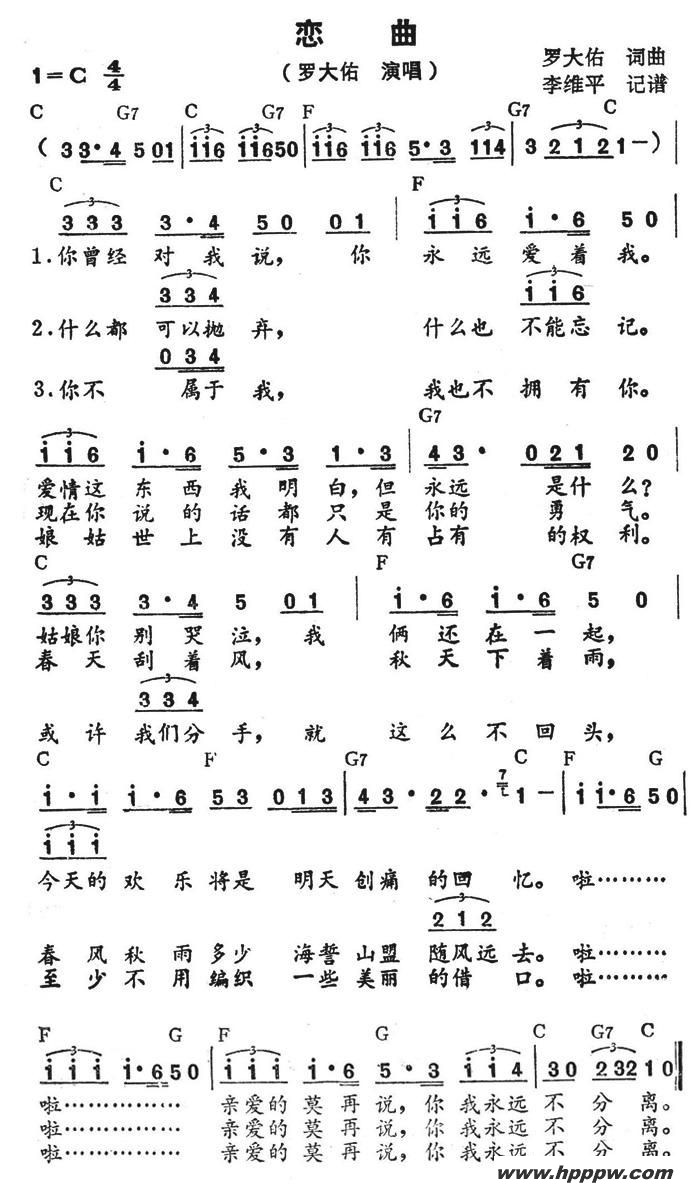 恋 曲
1=C 4/4
(罗大佑 演唱)
罗大佑 词曲
李维平 记谱
C G7 C G7 F G7 C
( 3 3·4 5 01 | i i6 i i650 | i i6 i i6 5·3 114 | 3 2 1 2 1 — ) |
C F
3 3 3 3·4 5 0 0 1 | i i 6 i·6 5 0
1.你曾经 对 我 说, 你 永 远 爱 着 我。
3 3 4 i i 6
2.什么都 可以抛 弃, 什么也 不能忘 记。
0 3 4
3.你不 属于 我, 我也不 拥 有 你。
G7
i i 6 i·6 5·3 1·3 | 4 3· 0 2 1 2 0
爱情这 东 西 我 明 白,但 永远 是什 么?
现在你 说 的 话 都 只 是 你的 勇 气。
娘 姑 世 上 没 有 人 有 占有 的权 利。
C F G7
3 3 3 3·4 5 0 1 | i·6 i·6 5 0
姑娘你 别 哭 泣, 我 俩 还 在 一 起,
春 天 刮 着 风, 秋 天 下 着 雨,
3 3 4
或 许 我们分 手, 就 这 么 不 回 头,
C F G7 C F G
i·i i·6 53 013 | 43·22· 7 1 — | i i·6 50
i i i
今天的 欢 乐 将是 明天 创痛 的回 忆。 啦………
2 1 2
春 风 秋 雨 多少 海誓 山盟 随风远 去。 啦………
至 少 不 用 编织 一些 美丽 的借 口。 啦………
F G F G C G7 C
i i i i·650 | i i i i·6 5·3 i i 4 | 30 23210 |
啦……………… 亲爱的 莫 再 说, 你 我永远 不 分 离。
啦……………… 亲爱的 莫 再 说, 你 我永远 不 分 离。
啦……………… 亲爱的 莫 再 说, 你 我永远 不 分 离。
www.hpppw.com